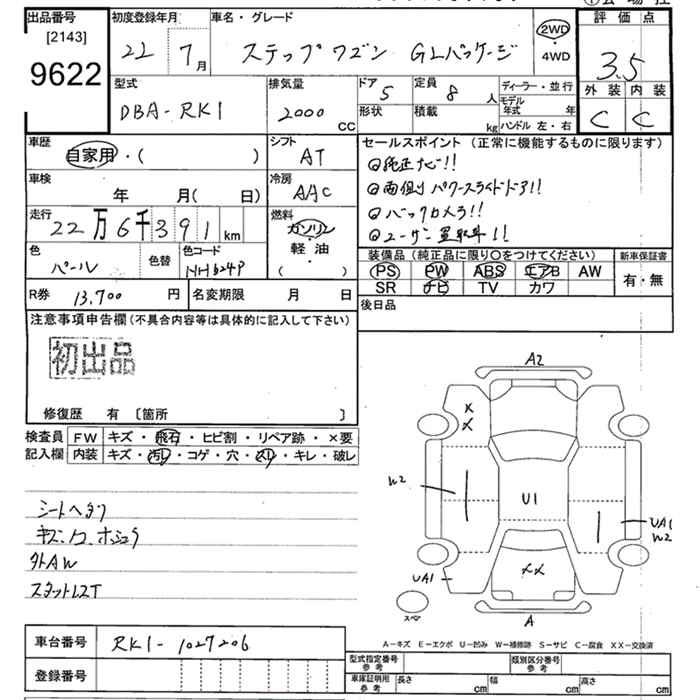 出品番号
[2143]
9622
初度登録年月
22 7月
車名・グレード
ステップワゴン GLパッケージ
2WD
・
4WD
評価点
3.5
外装 内装
C C
型式
DBA-RK1
排気量
2000
CC
ドア 5
形状
定員 8 人
積載 kg
ディーラー・並行
モデル年式 年
ハンドル 左・右
車歴
自家用・( )
シフト
AT
車検
年 月( 日)
冷房
AAC
走行
22万6千391 km
燃料
ガソリン
・
軽・油
・
( )
色
パール
色替
色コード
NH624P
R券 13,700 円
名変期限 月 日
セールスポイント (正常に機能するものに限ります)
◎純正ナビ!!
◎両側パワースライドドア!!
◎バックカメラ!!
◎ユーザー買取車!!
装備品(純正品に限り○をつけてください)
PS PW ABS エアB AW
SR ナビ TV カワ
新車保証書
有・無
後日品
注意事項申告欄(不具合内容等は具体的に記入して下さい)
初出品
修復歴 有 〔箇所 〕
検査員
記入欄
FW キズ・飛石・ヒビ割・リペア跡・×要
内装 キズ・汚レ・コゲ・穴・スリ・キレ・破レ
シートヘタリ
外AW
スタットレスT
A2
X
X
W2
U1
UA1
W2
UA1
XX
スペア
A
A-キズ E-エクボ U-凹み W-補修跡 S-サビ C-腐食 XX-交換済
車台番号 RK1-1027206
登録番号
型式指定番号
参考
類別区分番号
参考
車庫証明用
参考
長さ cm
幅 cm
高さ cm